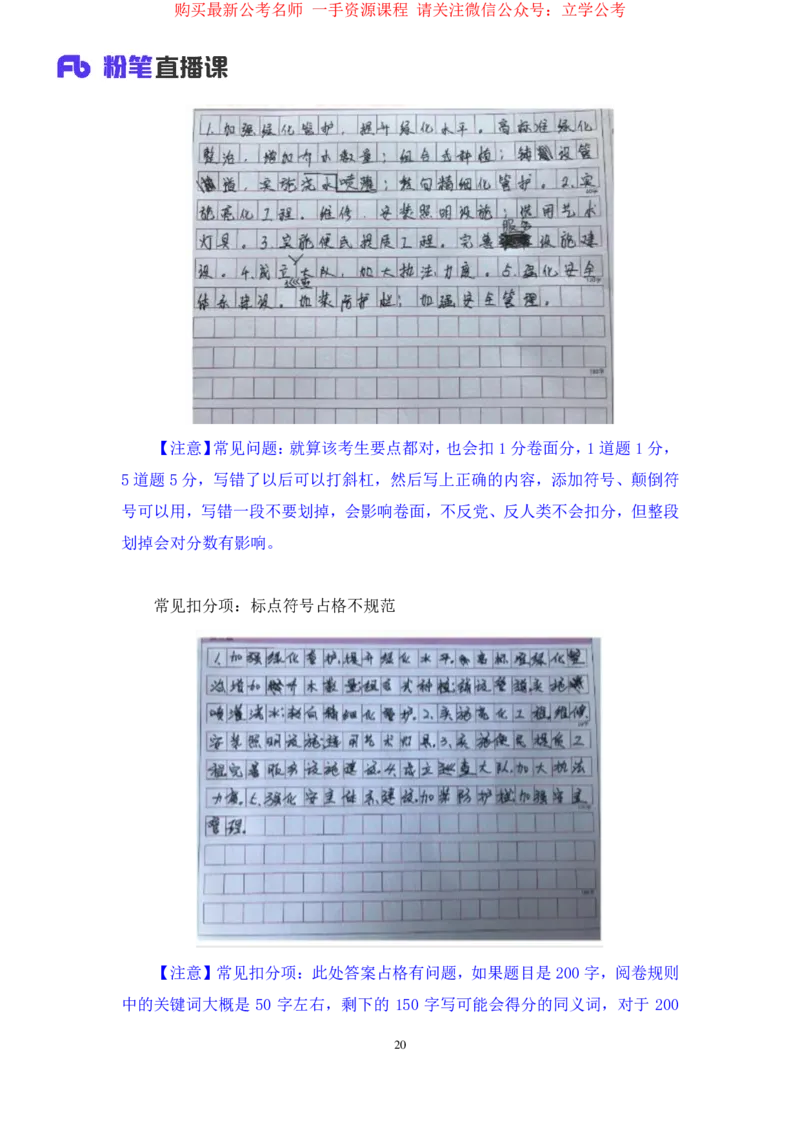 购买最新公考名师 一手资源课程 请关注微信公众号：立学公考
粉笔直播课
1.加强绿化管护，提升绿化水平。高标准绿化
整治，增加乔木数量；组合式种植；铺设管
道，实施浇水喷灌；整句精细化管护。2.实
施亮化工程。维修、安装照明设施；选用艺术
服务
灯具。3.实施便民提质工程。完善设施建
设。4.成立大队，加大执法力度。5.强化安全
巡查
体系建设。加装防护栏；加强安全管理。
【注意】常见问题：就算该考生要点都对，也会扣 1 分卷面分，1 道题 1 分，
5 道题 5 分，写错了以后可以打斜杠，然后写上正确的内容，添加符号、颠倒符
号可以用，写错一段不要划掉，会影响卷面，不反党、反人类不会扣分，但整段
划掉会对分数有影响。
常见扣分项：标点符号占格不规范
1.加强绿化管护，提升绿化水平。高标准绿化整
治增加乔木数量；组合式种植；铺设管道，实施
喷灌浇水；精细化管护。2.实施亮化工程。维修、
安装照明设施；选用艺术灯具。3.实施便民提质工
程完善服务设施建设。4.成立巡查大队，加大执法
力度。5.强化安全体系建设。加装防护栏；加强安全
管理。
【注意】常见扣分项：此处答案占格有问题，如果题目是 200 字，阅卷规则
中的关键词大概是 50 字左右，剩下的 150 字写可能会得分的同义词，对于 200
20